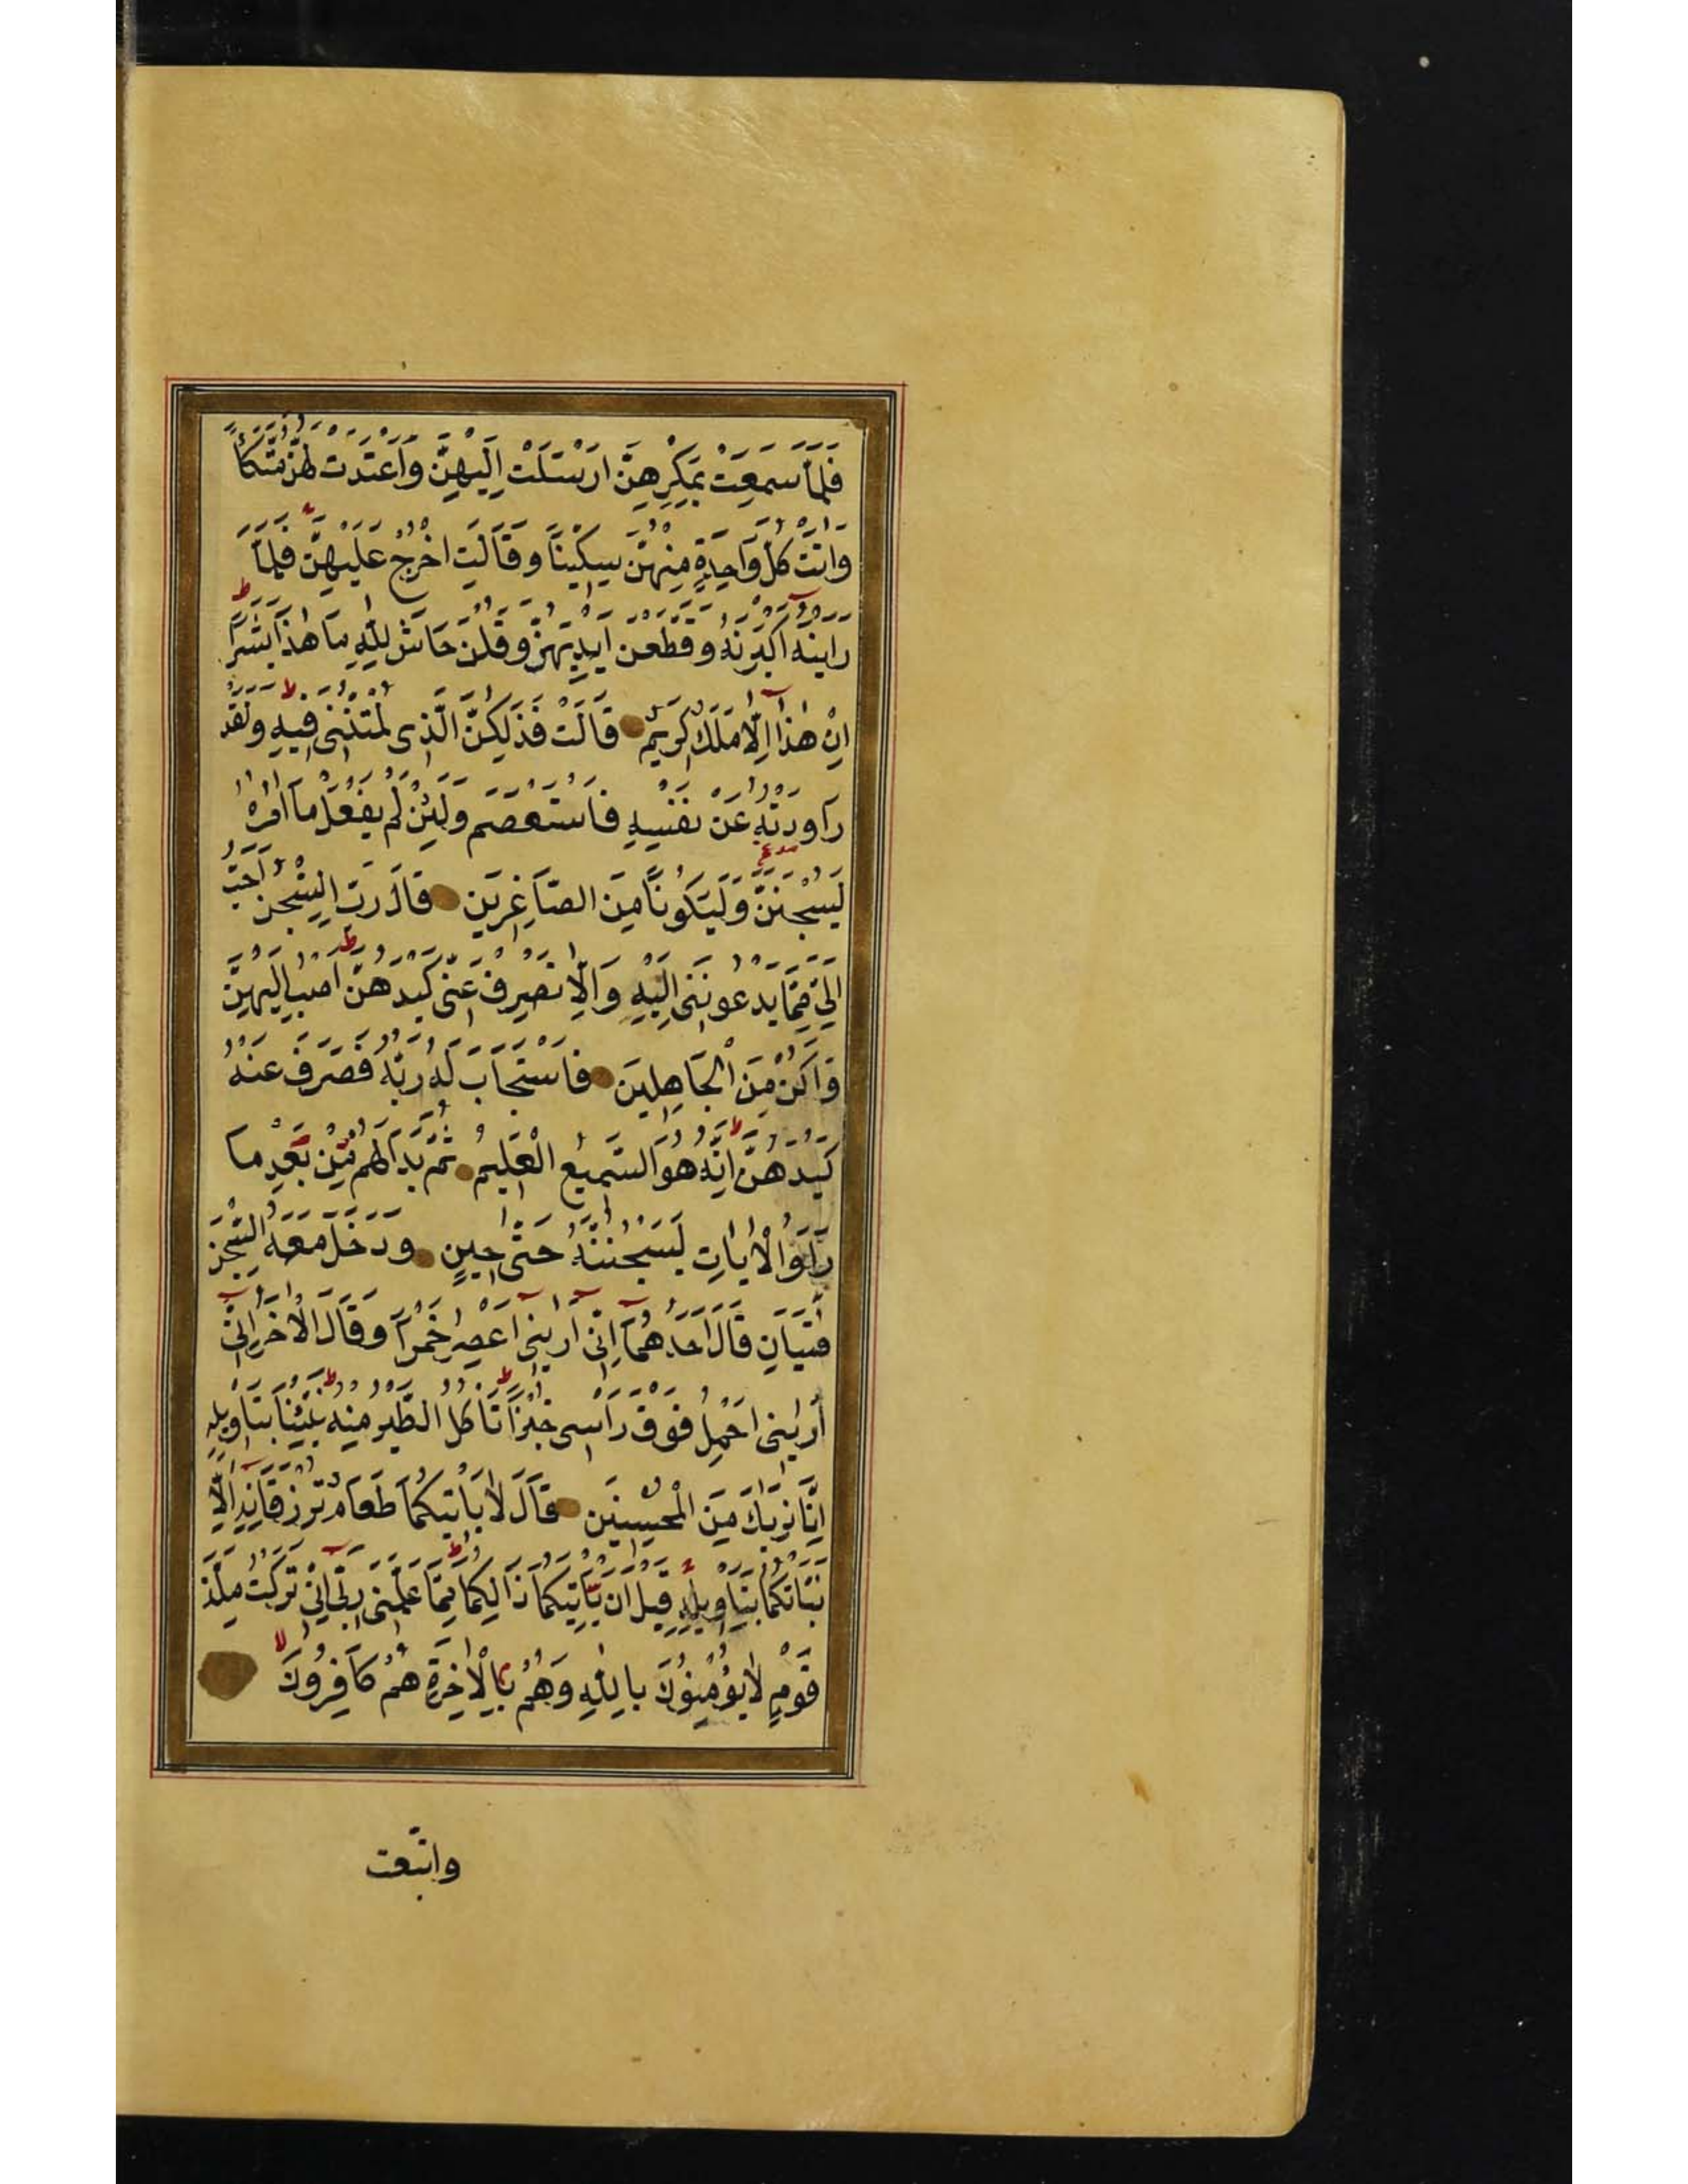 فَلَمَّا سَمِعَتْ بِمَكْرِهِنَّ اَرْسَلَتْ اِلَيْهِنَّ وَاَعْتَدَتْ لَهُنَّ مُتَّكَأً
وَاٰتَتْ كُلَّ وَاحِدَةٍ مِنْهُنَّ سِكِّينًا وَقَالَتِ اخْرُجْ عَلَيْهِنَّ فَلَمَّا
رَاَيْنَهُ اَكْبَرْنَهُ وَقَطَّعْنَ اَيْدِيَهُنَّ وَقُلْنَ حَاشَ لِلّٰهِ مَا هٰذَا بَشَرًا
اِنْ هٰذَا اِلَّا مَلَكٌ كَرِيمٌ قَالَتْ فَذٰلِكُنَّ الَّذِى لُمْتُنَّنِى فِيهِ وَلَقَدْ
رَاوَدْتُهُ عَنْ نَفْسِهِ فَاسْتَعْصَمَ وَلَئِنْ لَمْ يَفْعَلْ مَا اٰمُرُهُ
لَيُسْجَنَنَّ وَلَيَكُونًا مِنَ الصَّاغِرِينَ قَالَ رَبِّ السِّجْنُ اَحَبُّ
اِلَىَّ مِمَّا يَدْعُونَنِى اِلَيْهِ وَاِلَّا تَصْرِفْ عَنِّى كَيْدَهُنَّ اَصْبُ اِلَيْهِنَّ
وَاَكُنْ مِنَ الْجَاهِلِينَ فَاسْتَجَابَ لَهُ رَبُّهُ فَصَرَفَ عَنْهُ
كَيْدَهُنَّ اِنَّهُ هُوَ السَّمِيعُ الْعَلِيمُ ثُمَّ بَدَا لَهُمْ مِنْ بَعْدِ مَا
رَاَوُا الْاٰيَاتِ لَيَسْجُنُنَّهُ حَتّٰى حِينٍ وَدَخَلَ مَعَهُ السِّجْنَ
فَتَيَانِ قَالَ اَحَدُهُمَا اِنِّى اَرٰينِى اَعْصِرُ خَمْرًا وَقَالَ الْاٰخَرُ اِنِّى
اَرٰينِى اَحْمِلُ فَوْقَ رَاْسِى خُبْزًا تَاْكُلُ الطَّيْرُ مِنْهُ نَبِّئْنَا بِتَاْوِيلِهِ
اِنَّا نَرٰيكَ مِنَ الْمُحْسِنِينَ قَالَ لَا يَاْتِيكُمَا طَعَامٌ تُرْزَقَانِهِ اِلَّا
نَبَّاْتُكُمَا بِتَاْوِيلِهِ قَبْلَ اَنْ يَاْتِيَكُمَا ذٰلِكُمَا مِمَّا عَلَّمَنِى رَبِّى اِنِّى تَرَكْتُ مِلَّةَ
قَوْمٍ لَا يُؤْمِنُونَ بِاللّٰهِ وَهُمْ بِالْاٰخِرَةِ هُمْ كَافِرُونَ
واتّبعت